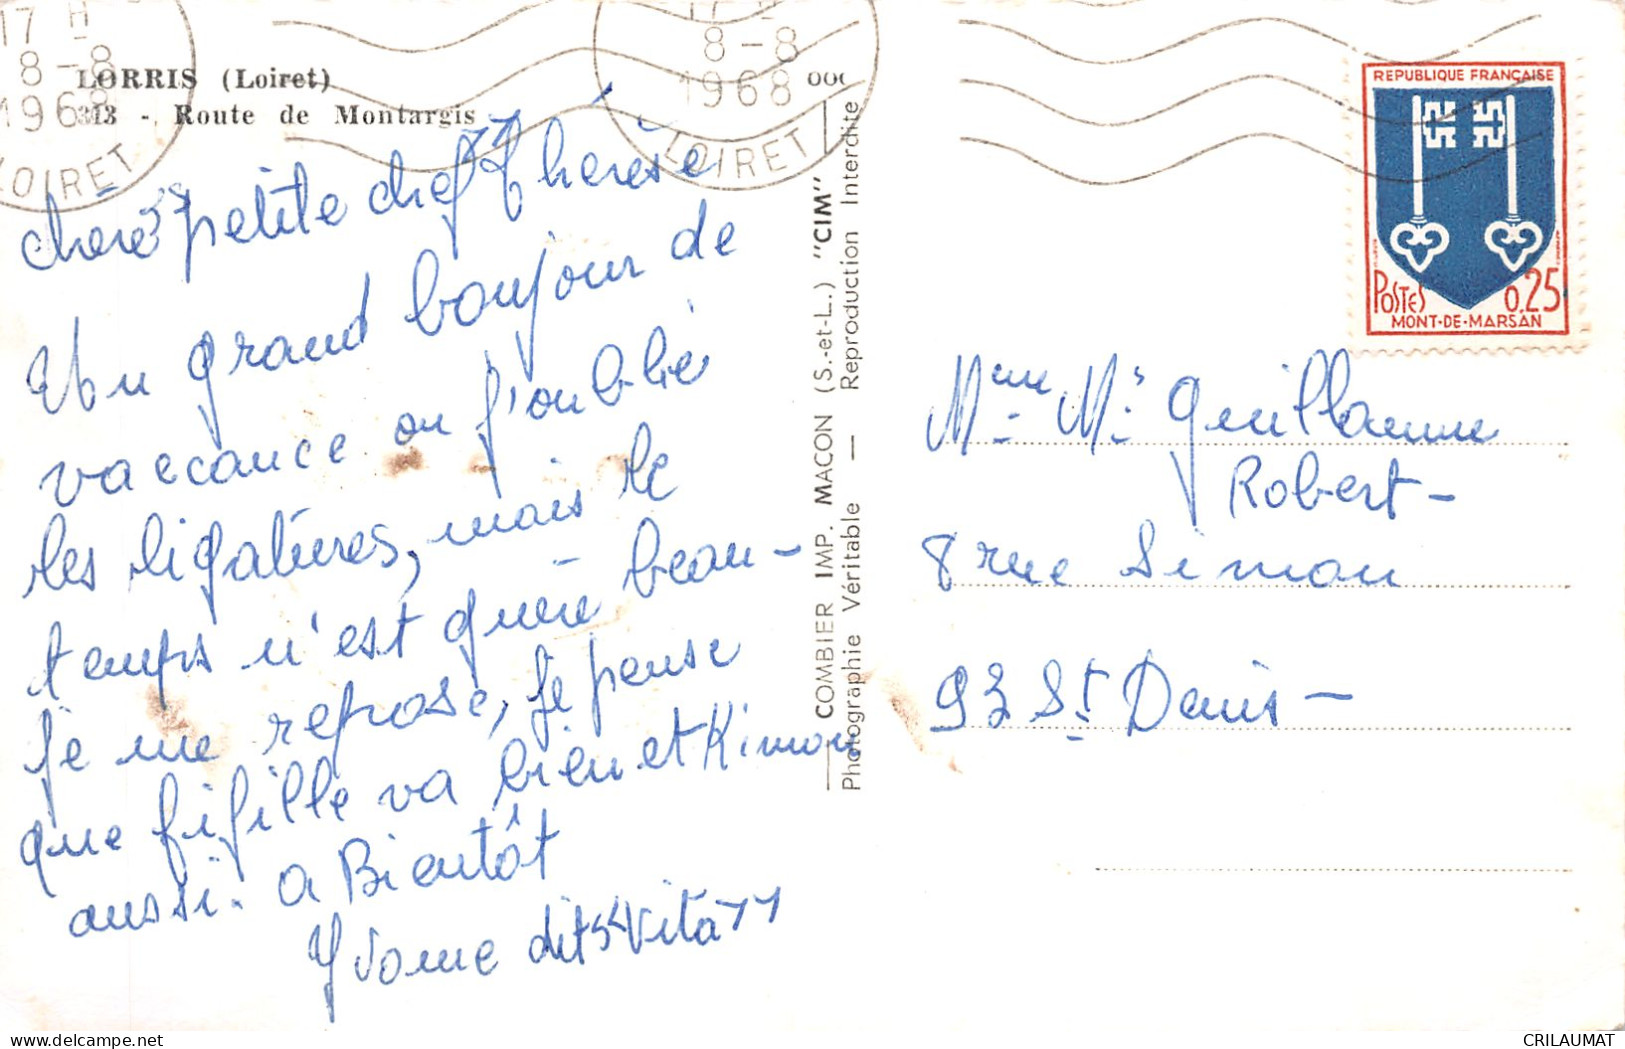 17 H
8-8
1968
LOIRET
17 H
8-8
1968
LOIRET
LORRIS (Loiret)
313 - Route de Montargis
chere "petite chef" Thérèse
Un grand bonjour de
vaccance ou j'oublie
les ligatures, mais le
temps n'est guère beau -
je me repose, je pense
que fifille va bien et Kimon
aussi. a Bientôt
Yvonne dit "Vita"
COMBIER IMP. MACON (S.-et-L.) "CIM"
Photographie Véritable — Reproduction Interdite
REPUBLIQUE FRANÇAISE
POSTES 0,25
MONT-DE-MARSAN
Mme Mr Guillaume
Robert -
8 rue Simon
93 St Denis -
CRILAUMAT